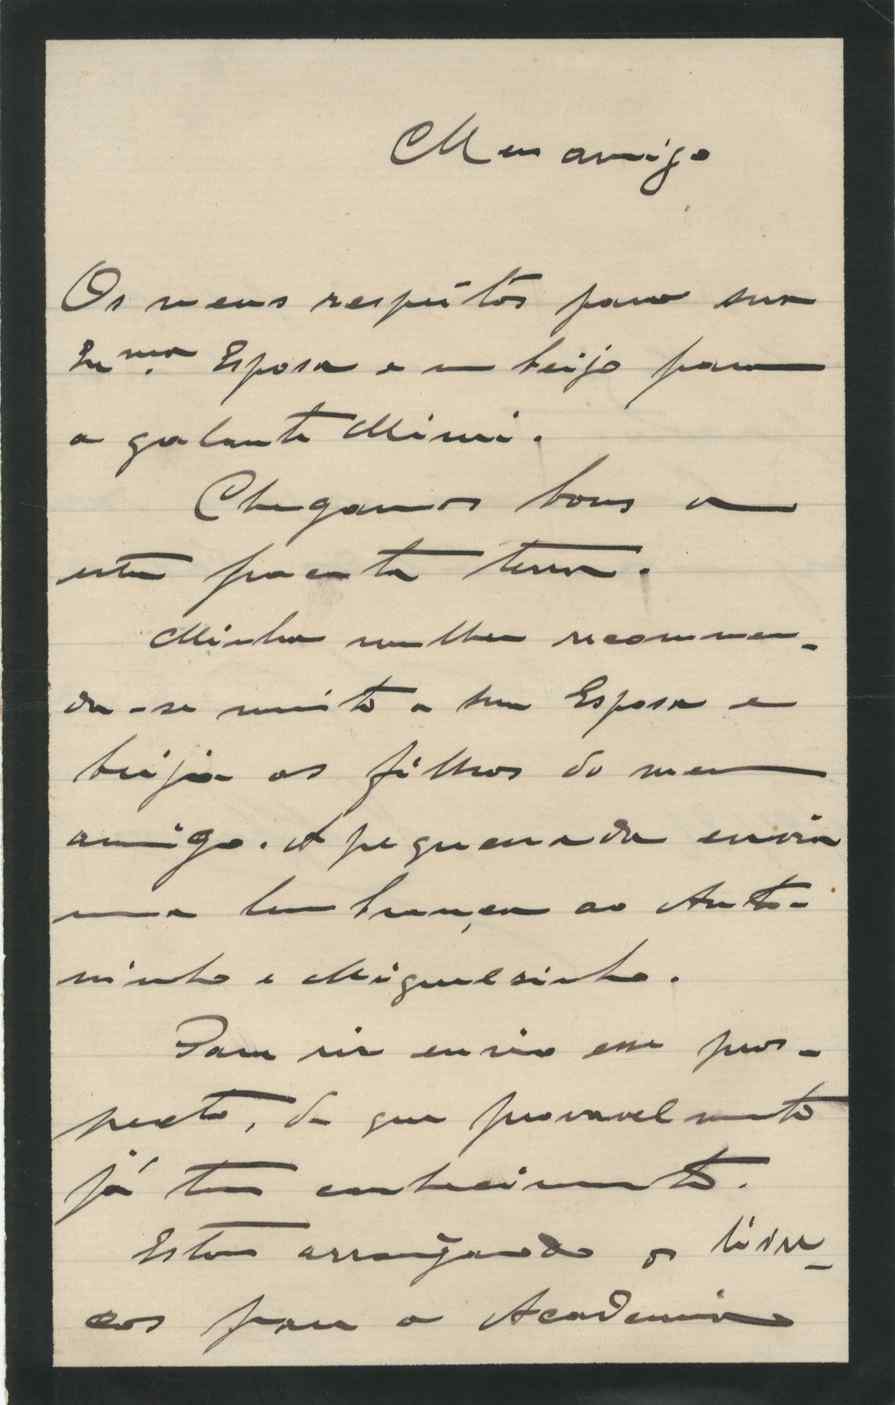 Meu amigo
Os meus respeitos para sua
Exma. Esposa e um beijo para
a galante Mimi.
Chegamos bons a
esta pacata terra.
Minha mulher recommen-
da-se muito a sua Esposa e
beija os filhos do meu
amigo. A pequenada envia
uma lembrança ao Anto-
ninho e Miguelsinho.
Para rir envio esse pros-
pecto, de que provavelmente
já tem conhecimento.
Estou arranjando os
para a Academia